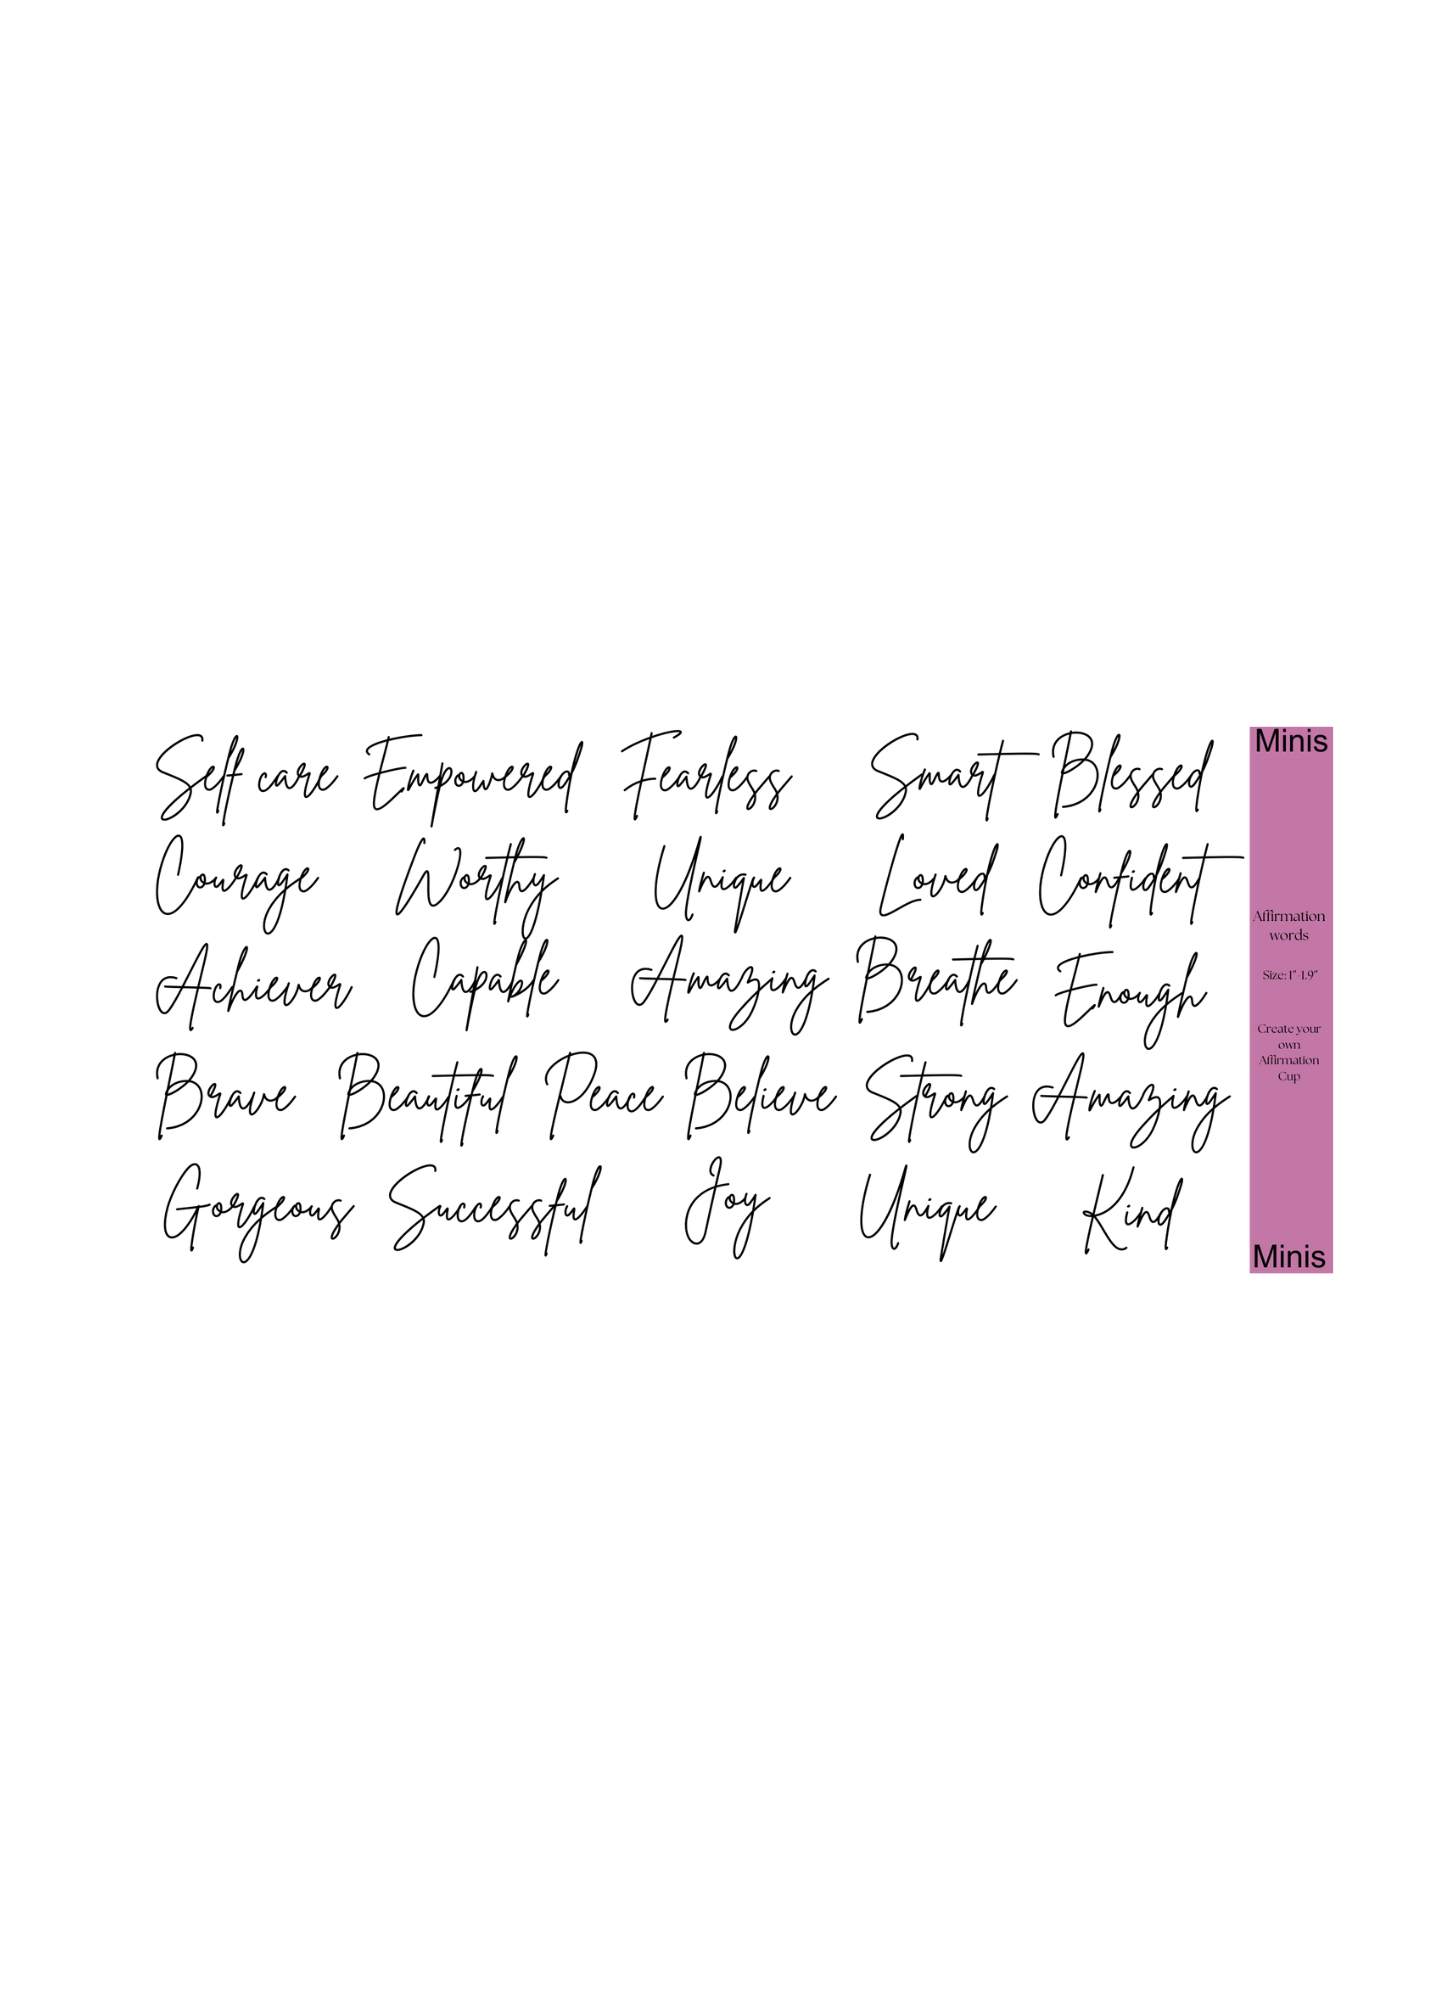 Self care Empowered Fearless Smart Blessed
Courage Worthy Unique Loved Confident
Achiever Capable Amazing Breathe Enough
Brave Beautiful Peace Believe Strong Amazing
Gorgeous Successful Joy Unique Kind
Minis
Affirmation
words
Size: 1"-1.9"
Create your
own
Affirmation
Cup
Minis